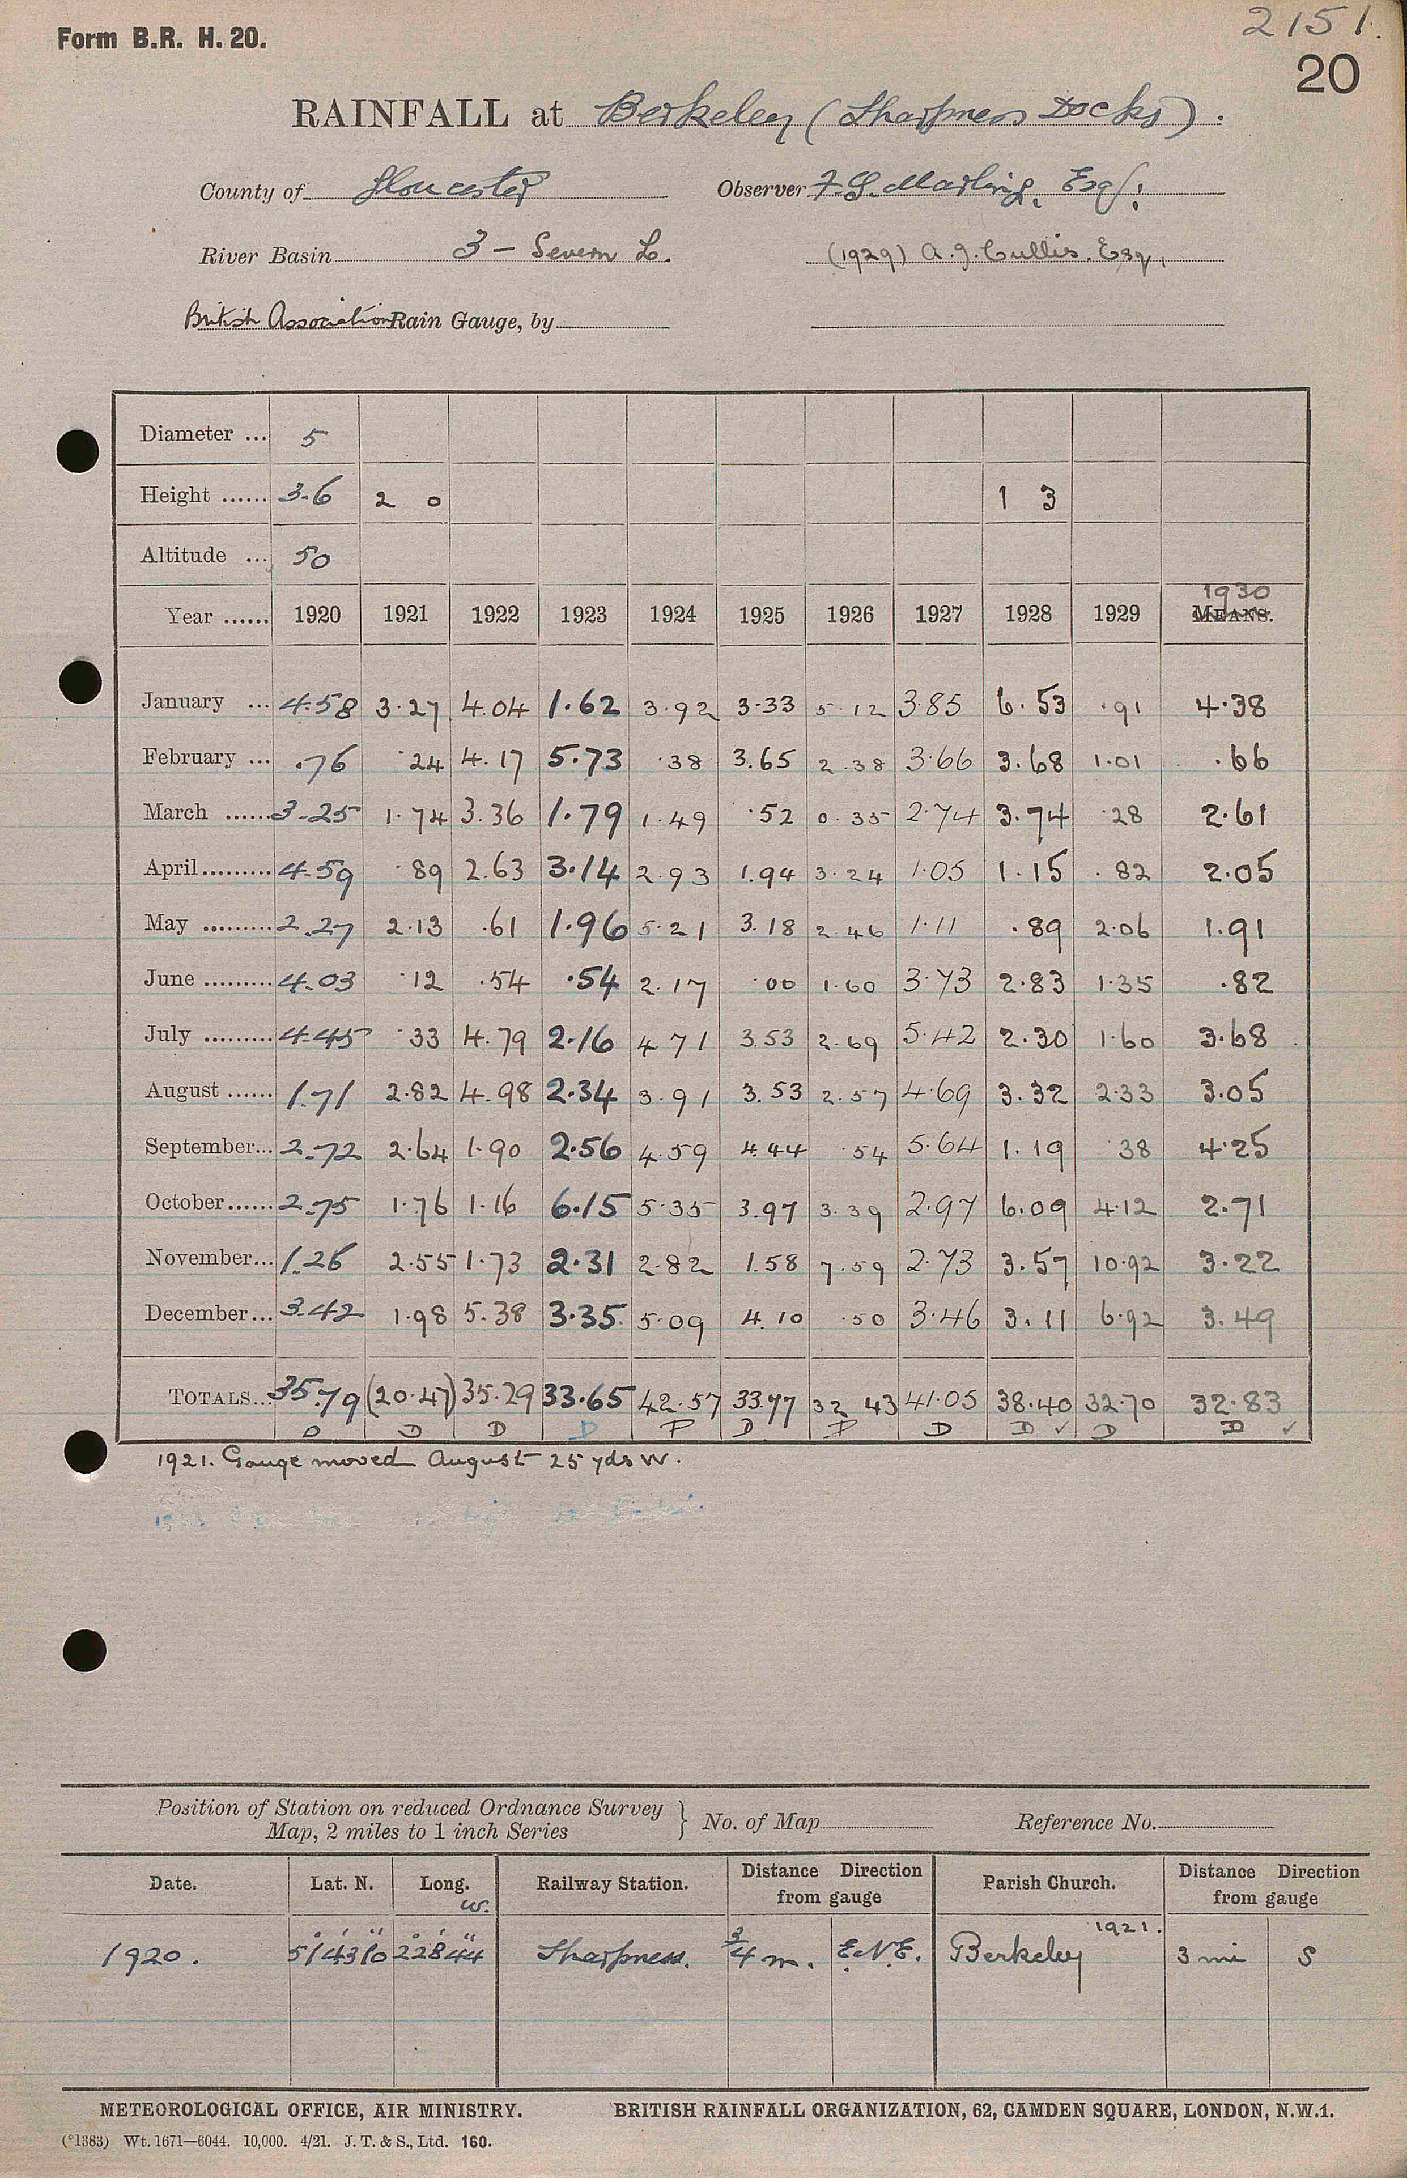 2151.
Form B.R. H. 20.
20
RAINFALL at Berkeley (Sharpness Docks).
County of Gloucester Observer F. G. Marling, Esq:
River Basin 3 - Severn L. (1929) A. J. Cullis. Esq.
British Association Rain Gauge, by
Diameter ... 5
Height ...... 3.6 2 0 1 3
Altitude ... 50
1930
Year ...... 1920 1921 1922 1923 1924 1925 1926 1927 1928 1929 MEANS.
January ... 4.58 3.27 4.04 1.62 3.92 3.33 5.12 3.85 6.53 .91 4.38
February ... .76 .24 4.17 5.73 .38 3.65 2.38 3.66 3.68 1.01 .66
March ...... 3.25 1.74 3.36 1.79 1.49 .52 0.35 2.74 3.74 .28 2.61
April ......... 4.59 .89 2.63 3.14 2.93 1.94 3.24 1.05 1.15 .82 2.05
May ......... 2.27 2.13 .61 1.96 5.21 3.18 2.46 1.11 .89 2.06 1.91
June ......... 4.03 .12 .54 .54 2.17 .00 1.60 3.73 2.83 1.35 .82
July ......... 4.45 .33 4.79 2.16 4.71 3.53 2.69 5.42 2.30 1.60 3.68
August ...... 1.71 2.82 4.98 2.34 3.91 3.53 2.57 4.69 3.32 2.33 3.05
September... 2.72 2.64 1.90 2.56 4.59 4.44 .54 5.64 1.19 .38 4.25
October...... 2.75 1.76 1.16 6.15 5.35 3.97 3.39 2.97 6.09 4.12 2.71
November... 1.26 2.55 1.73 2.31 2.82 1.58 7.59 2.73 3.57 10.92 3.22
December... 3.42 1.98 5.38 3.35 5.09 4.10 .50 3.46 3.11 6.92 3.49
TOTALS... 35.79 (20.47) 35.29 33.65 42.57 33.77 32 43 41.05 38.40 32.70 32.83
D D D D P D P D D ✓ D D ✓
1921. Gauge moved August 25 yds W.
Position of Station on reduced Ordnance Survey Map, 2 miles to 1 inch Series } No. of Map Reference No.
Date. Lat. N. Long. W. Railway Station. Distance Direction from gauge Parish Church. Distance Direction from gauge
1921.
1920. 51° 43' 10" 2° 28' 44" Sharpness. 3/4 m. E.N.E. Berkeley 3 mi S
METEOROLOGICAL OFFICE, AIR MINISTRY. BRITISH RAINFALL ORGANIZATION, 62, CAMDEN SQUARE, LONDON, N.W.1.
(*1383) Wt. 1671—6044. 10,000. 4/21. J. T. & S., Ltd. 160.